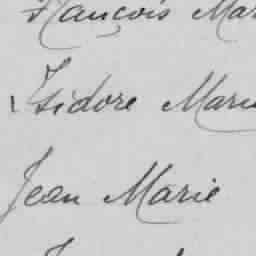 François Mar
Isidore Marie
Jean Marie